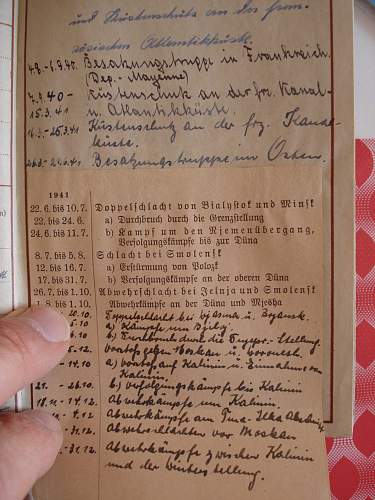 und Küstenschutz an der fran-
zösischen Atlantikküste.
4.8.-6.9.40. Besatzungstruppe in Frankreich.
(Dep. - Mayenne)
7.9.40 - Küstenschutz an der frz. Kanal-
15.3.41 u. Atlantikküste.
16.3.-25.3.41 Küstenschutz an der frz. Kanal-
küste.
21.6.41. Besatzungstruppe im Osten.
1941
22. 6. bis 10. 7. Doppelschlacht von Bialystok und Minsk
22. bis 24. 6. a) Durchbruch durch die Grenzstellung
24. 6. bis 10. 7. b) Kampf um den Njemenübergang,
Verfolgungskämpfe bis zur Düna
8. 7. bis 5. 8. Schlacht bei Smolensk
12. bis 16. 7. a) Erstürmung von Polozk
17. bis 31. 7. b) Verfolgungskämpfe an der oberen Düna
26. 7. bis 1. 10. Abwehrschlacht bei Jelnja und Smolensk
1. 8. bis 1. 10. Abwehrkämpfe an der Düna und Mjesha
20.10. Doppelschlacht bei Wjasma u. Brjansk.
5.10 a) Kämpfe um
.10 b) Durchbruch durch die Dnjepr-Stellung.
5.12. Vorstoß gegen Moskau u. Woronesh.
-14.10 a) Vorstoß auf Kalinin u. Einnahme von
Kalinin.
21. - 26.10. b) Verfolgungskämpfe bei Kalinin
18.11. - 14.12. Abwehrkämpfe um Kalinin.
4.12. Abwehrkämpfe am
- 31.12. Abwehrschlachten vor Moskau
- 31.12. Abwehrkämpfe zwischen Kalinin
und der Winterstellung.